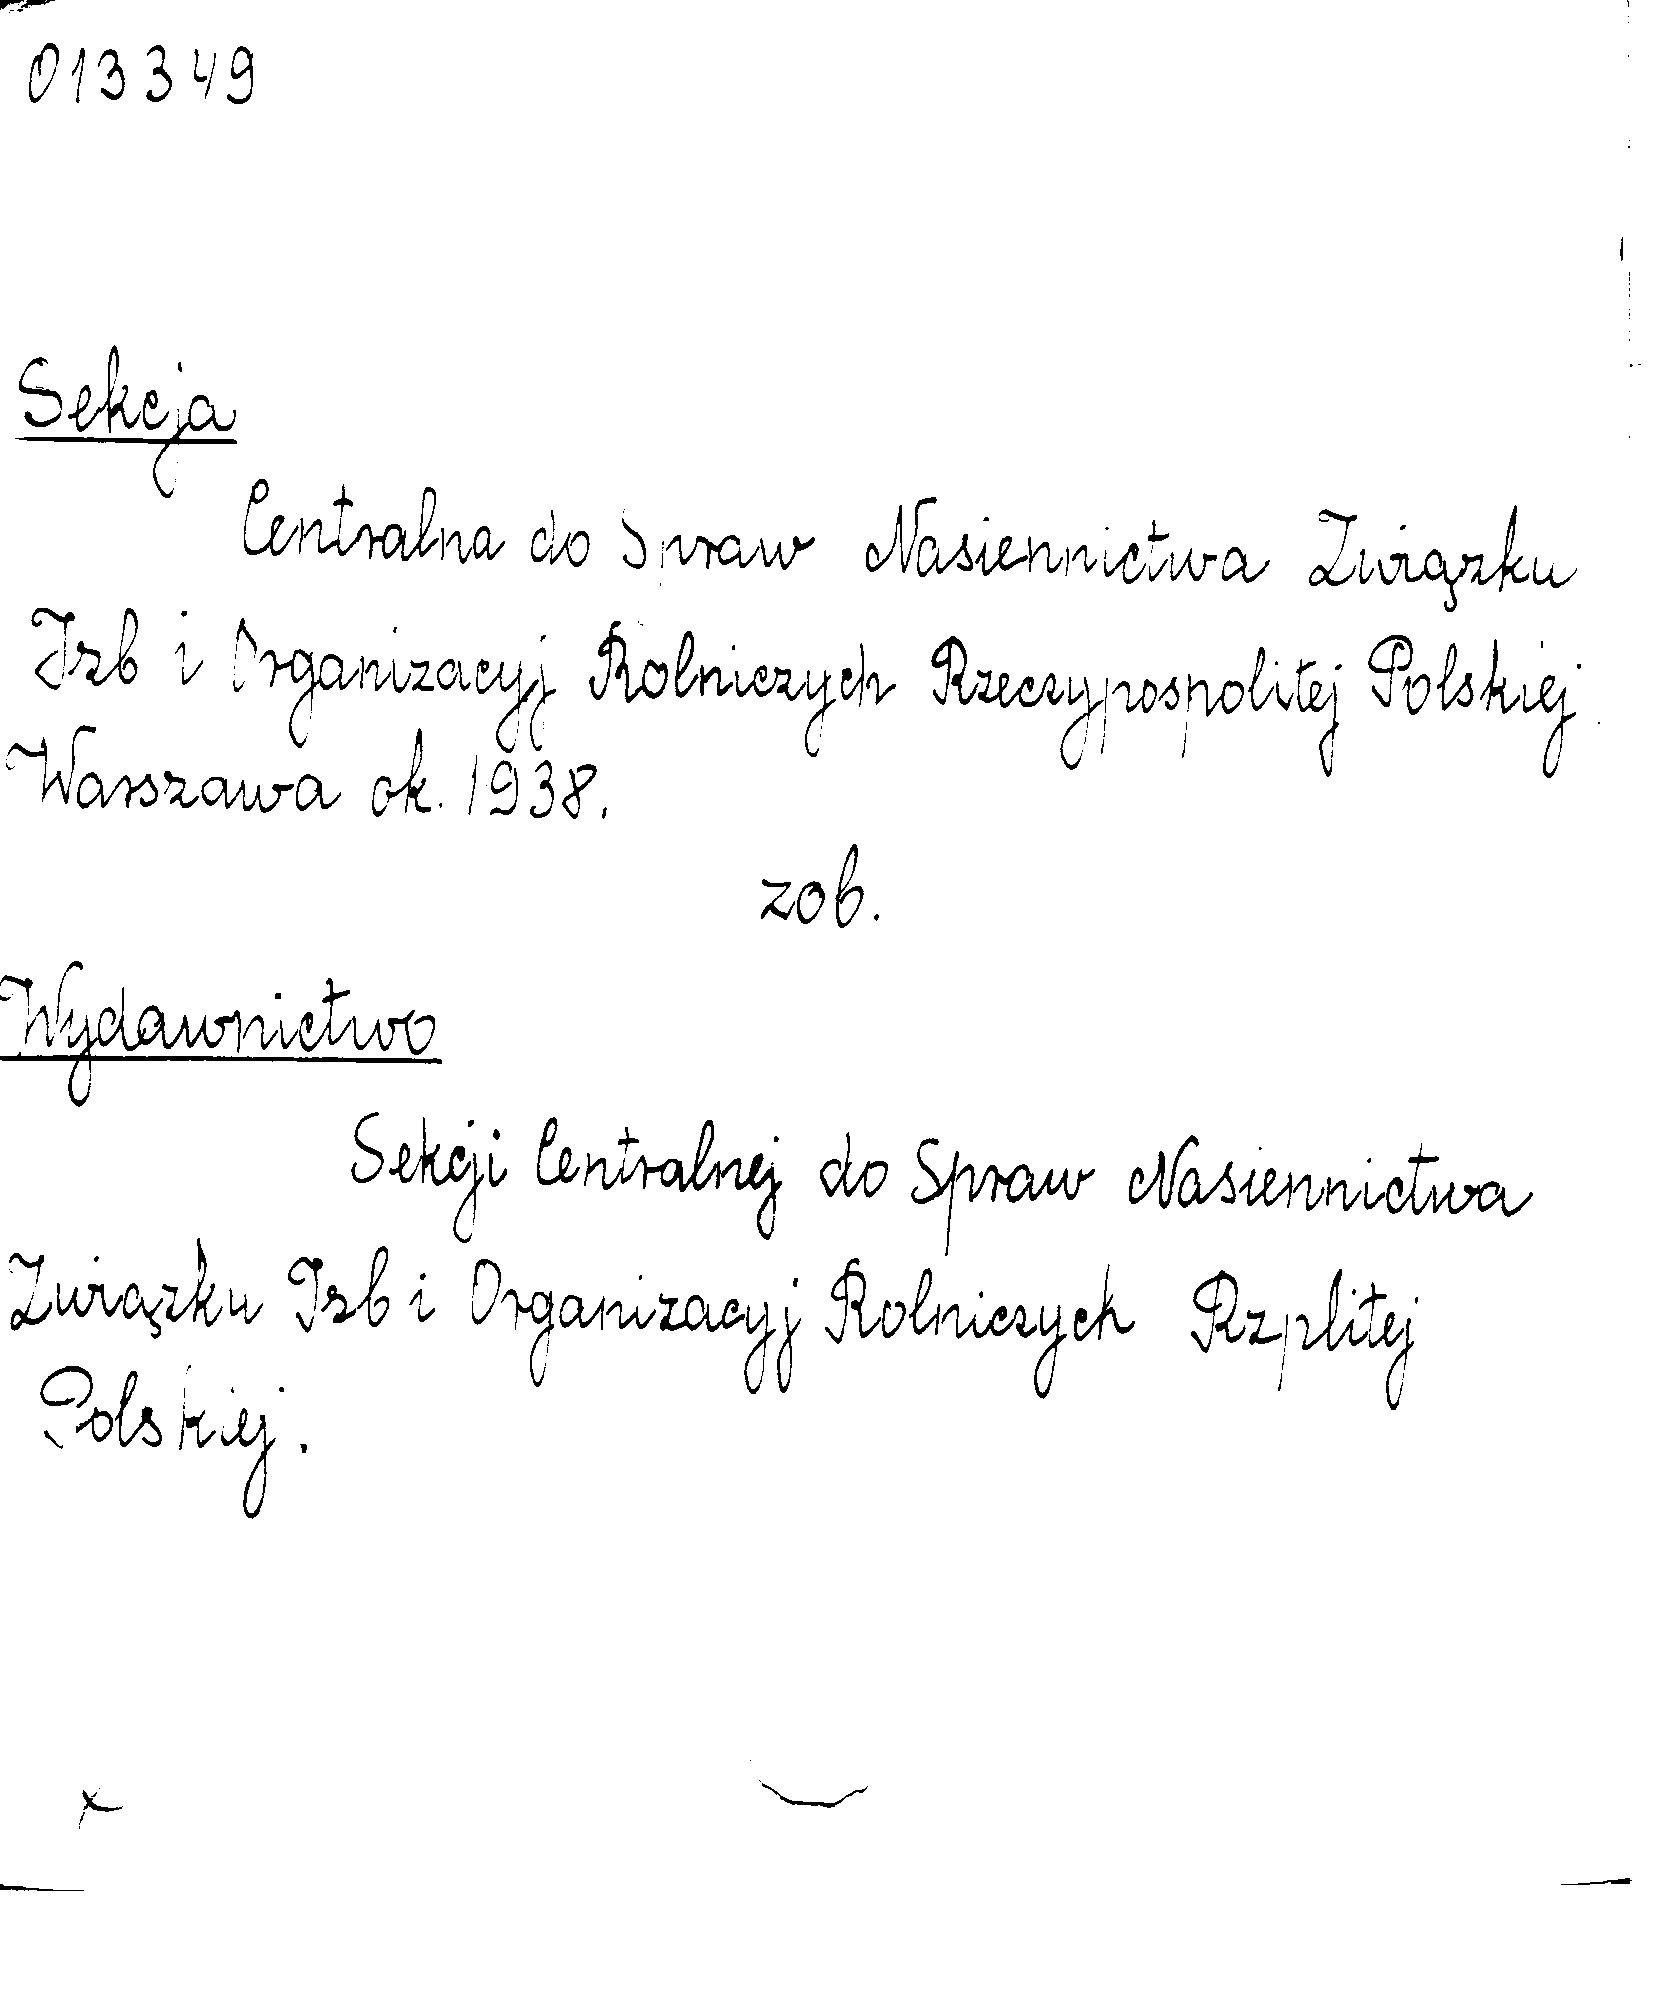 013349
Sekcja
Centralna do Spraw Nasiennictwa Związku
Izb i Organizacyj Rolniczych Rzeczypospolitej Polskiej
Warszawa ok. 1938.
zob.
Wydawnictwo
Sekcji Centralnej do Spraw Nasiennictwa
Związku Izb i Organizacyj Rolniczych Rzplitej
Polskiej.
x